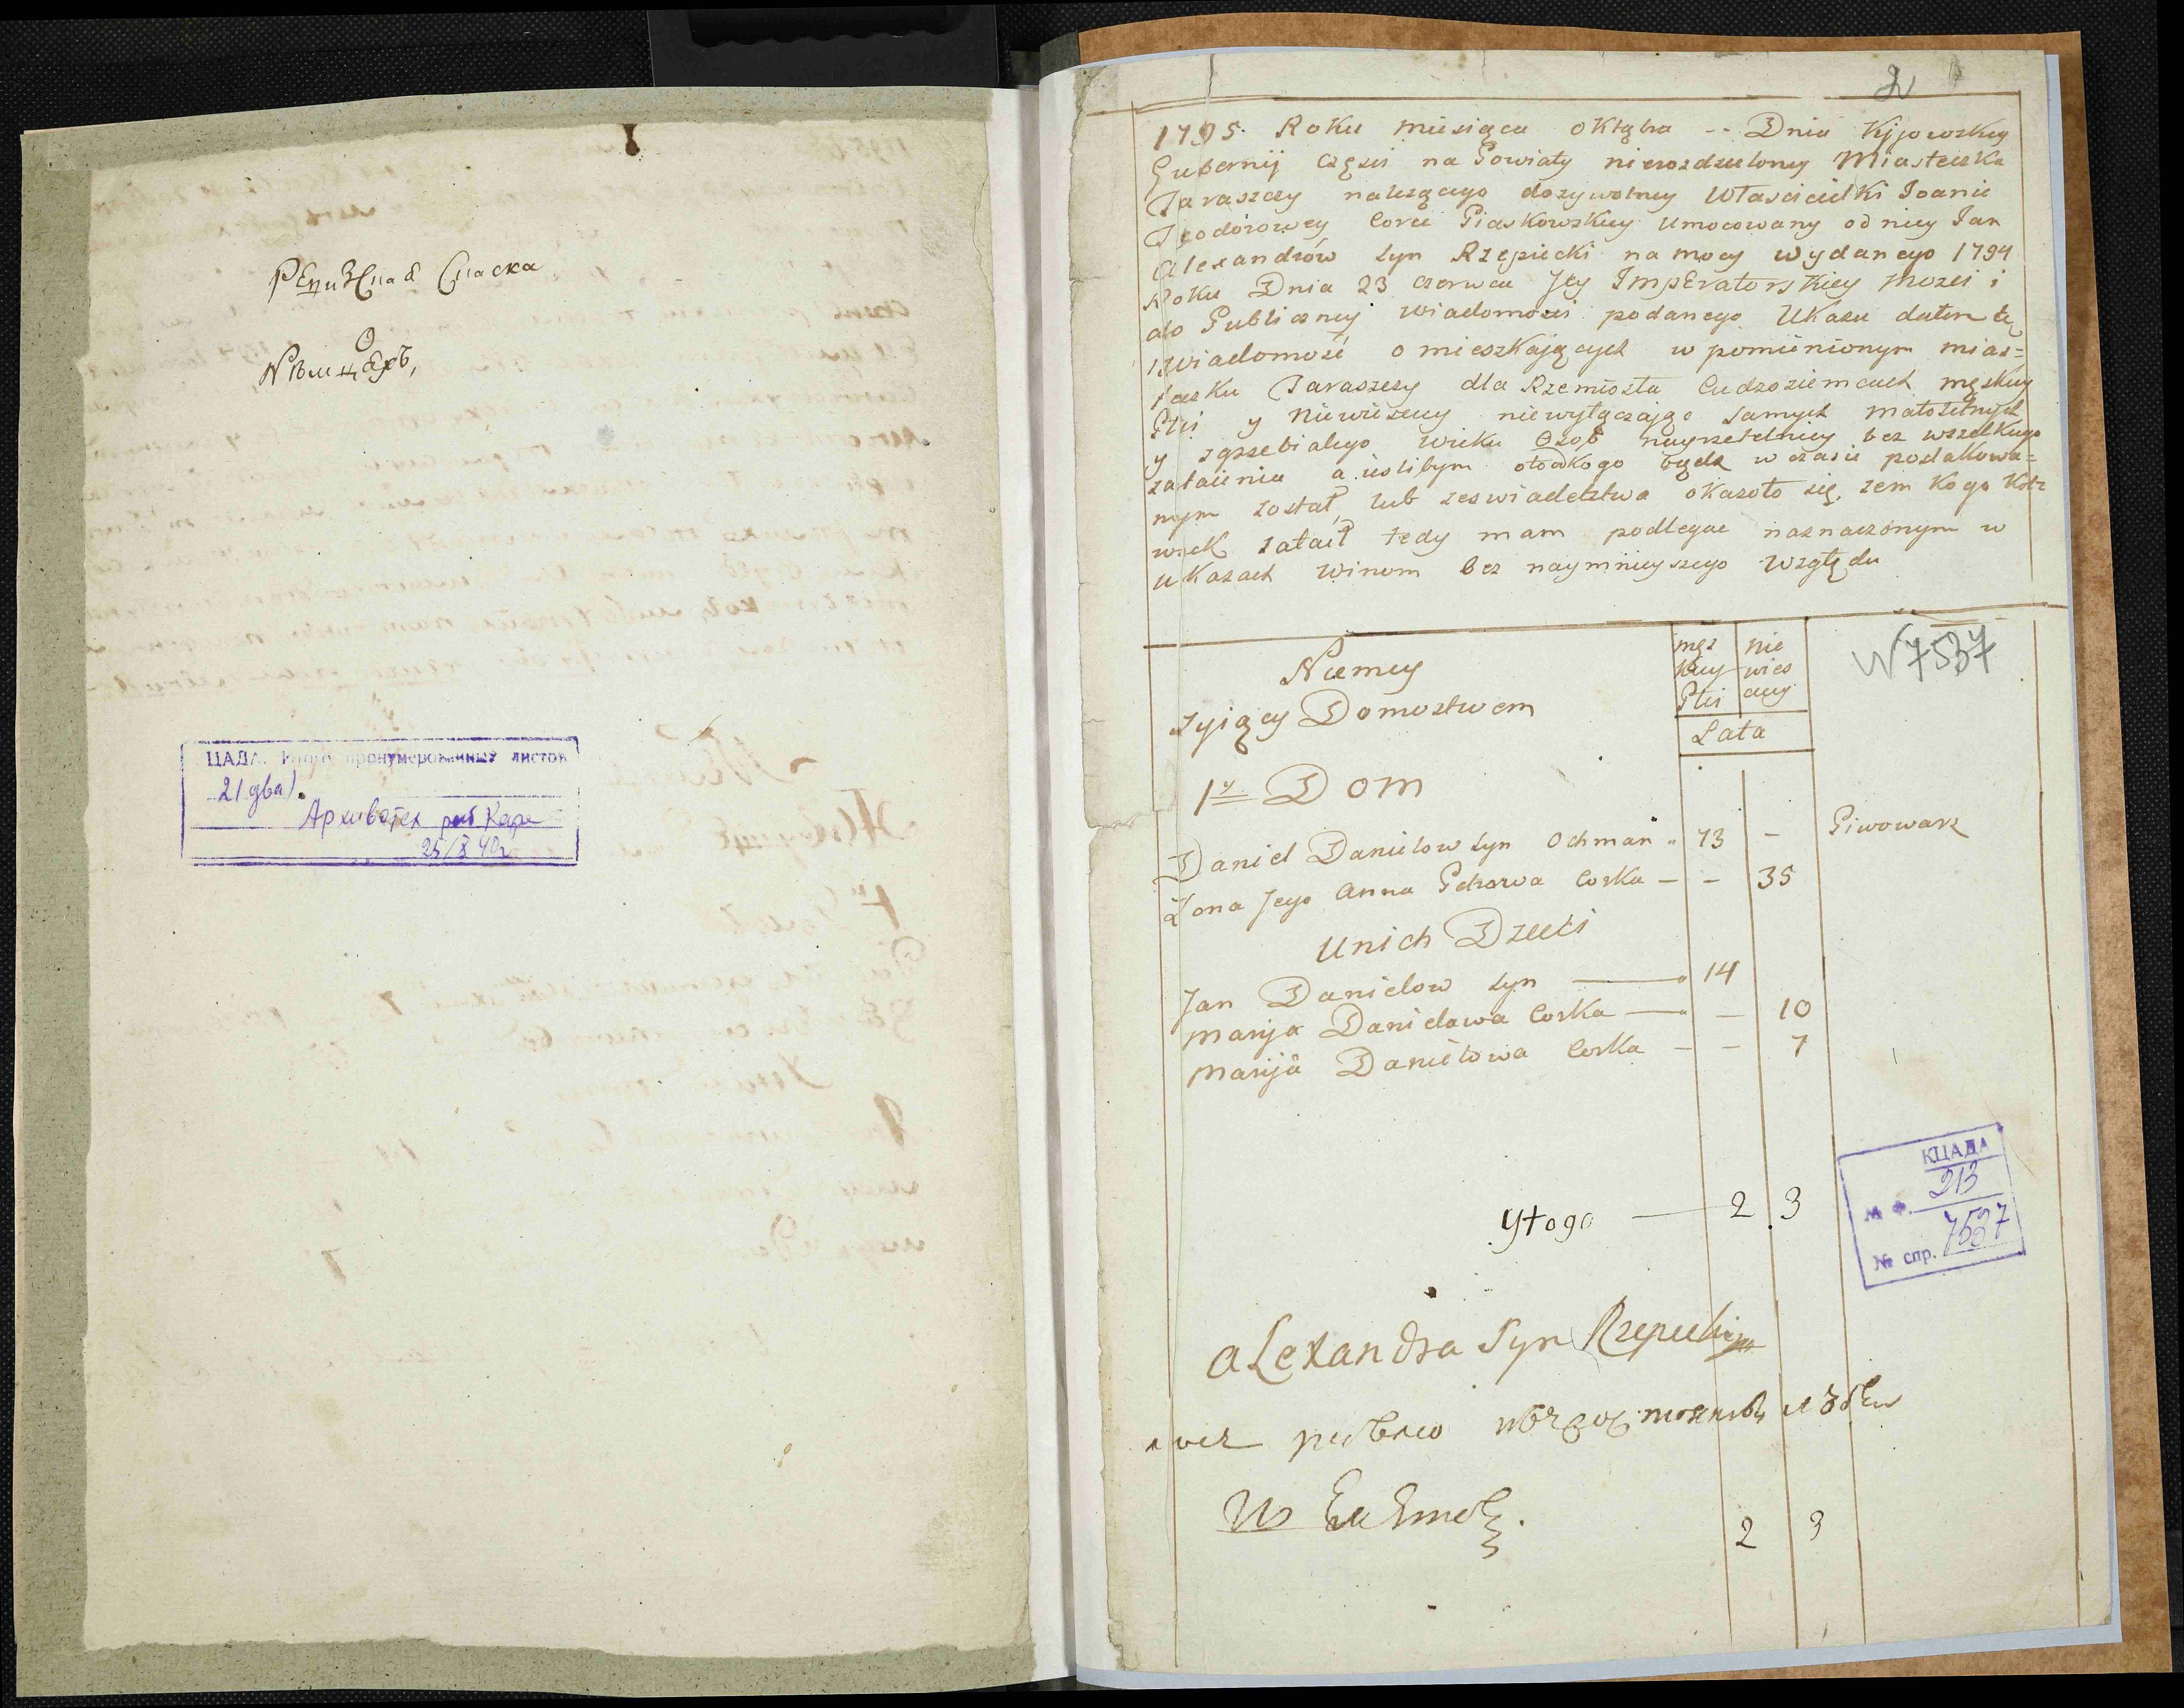 Ревизская Сказка
О
Нѣмцахъ,
ЦАДА. Итого пронумерованных листов
2 (два).
Архивотех
25/X 40 г
2
1795 Roku Miesiąca oktąbra -- Dnia Kijowskiey
Gubernij części na Powiaty nierozdzieloney Miasteczka
Taraszczy należącego dożywotney Właścicielki Joanie
Teodorowey Corce Piaskowskiey Umocowany od niey Jan
Alexandrów Syn Rzepiecki na mocy wydanego 1794
Roku Dnia 23 czerwca Jey ImpEratorskiey Mości i
do Publiczney wiadomości podanego Ukazu datem tę
wiadomość o mieszkaiących w pomienionym mias=
teczku Taraszczy dla Rzemiosła Cudzoziemcach męskiey
Płci y Niewieściey niewyłączaiąc samych małoletnych
y zgrzebiałego wieku Osób nayrzetelniey bez wszelkiego
zataienia a ieslibym otokogo będz w czasie poszlakowa=
nym został, lub zeświadectwa okazało się, żem Kogo Kol=
wiek zataił tedy mam podlegac naznaczonym w
uKazach winom bez naymnieyszego Względu
Niemcy
żyiący Domostwem
męs
kiey
Płci
nie
wies
ciey
Lata
N 7537
1y Dom
Daniel Danielow Syn Ochman 73 - Piwowarz
Żona Jego Anna Petrowa Corka - - 35
Unich Dzieci
Jan Danielow Syn 14
Maryja Danielowa Corka - 10
Maryja Danielowa Corka - - 7
Ytogo 2 3
КЦАДА
№ Ф. 213
№ спр. 7537
aLexandra Syn Rzepiecki
2 3